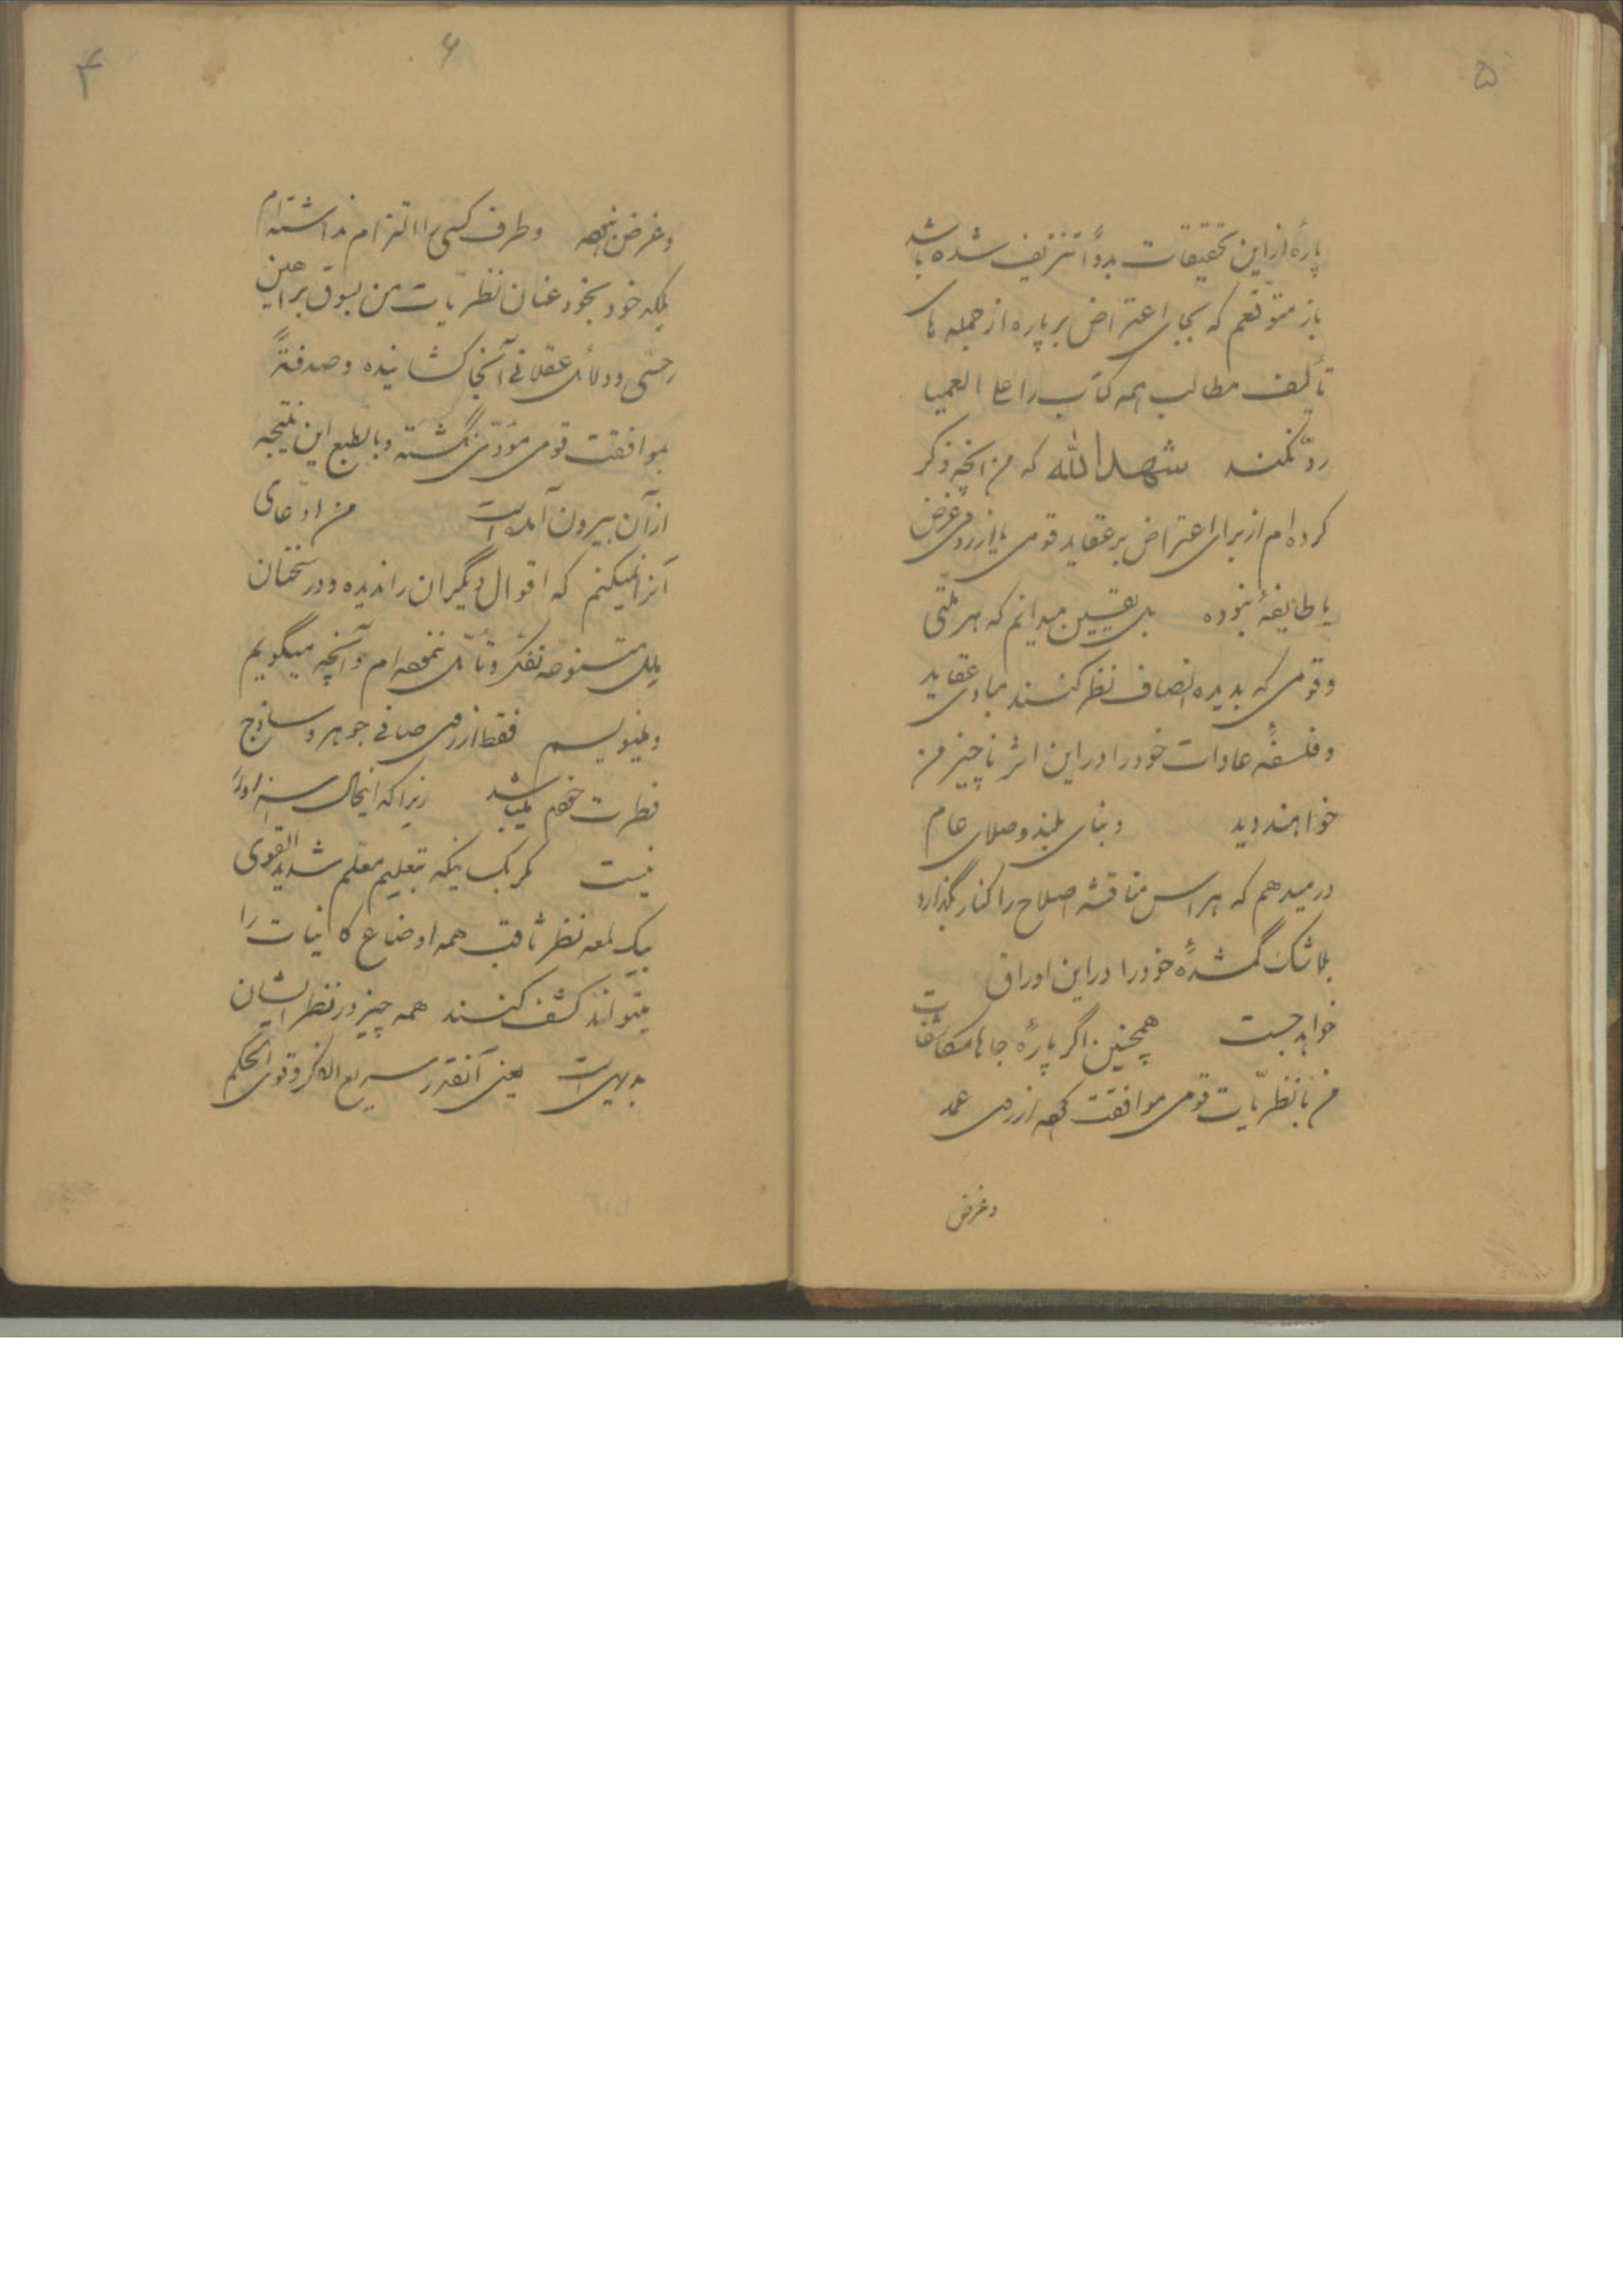 ۵
پارهٔ از این تحقیقات بدواً تزئیف شده باشد
باز متوقعم که بجای اعتراض بر پاره از جمله های
تألیف مطالب همه کتاب را علی العمیا
ردّ نکنند شهد الله که من انچه ذکر
کرده ام از برای اعتراض بر عقاید قومی یا از روی غرض
با طایفهٔ نبوده بل یقین میدانم که هر ملتی
و قومی که بدیده انصاف نظر کنند مبادی عقاید
و فلسفهٔ عادات خود را در این اثر ناچیز من
خواهند دید و بنای بلند و صلای عام
در میدهم که هر اس مناقشه اصلاح را کنار بگذارد
بلا شک گمشدهٔ خود را در این اوراق
خواهد جست همچنین اگر پارهٔ جاها مکاشفات
من با نظریّات قومی موافقت کرده از روی عمد
و غرض
۴
۶
و غرض نبوده و طرف کسی را التزام نداشته‌ام
بلکه خود بخود عنان نظریّات من بسوق براهین
حسّی و دلائل عقلانی آنجا کشانیده و صدفةً
بموافقت قومی مؤدّی گشته و بالطبع این نتیجه
از آن بیرون آمده است من ادّعای
آنرا نمیکنم که اقوال دیگران را ندیده و در سخنان
ملل متنوعه تفکر و تأمّل ننموده ام و آنچه میگویم
و مینویسم فقط از روی صافی جوهر و ساذج
فطرت خودم میباشد زیرا که اینحال سزاوار
نیست مگر بکسانیکه بتعلیم معلم شدید القوی
بیک لمعه نظر ثاقب همه اوضاع کاینات را
میتوانند کشف کنند همه چیز در نظر ایشان
بدیهی است یعنی آنقدر سریع الفکر و قوی الحکم